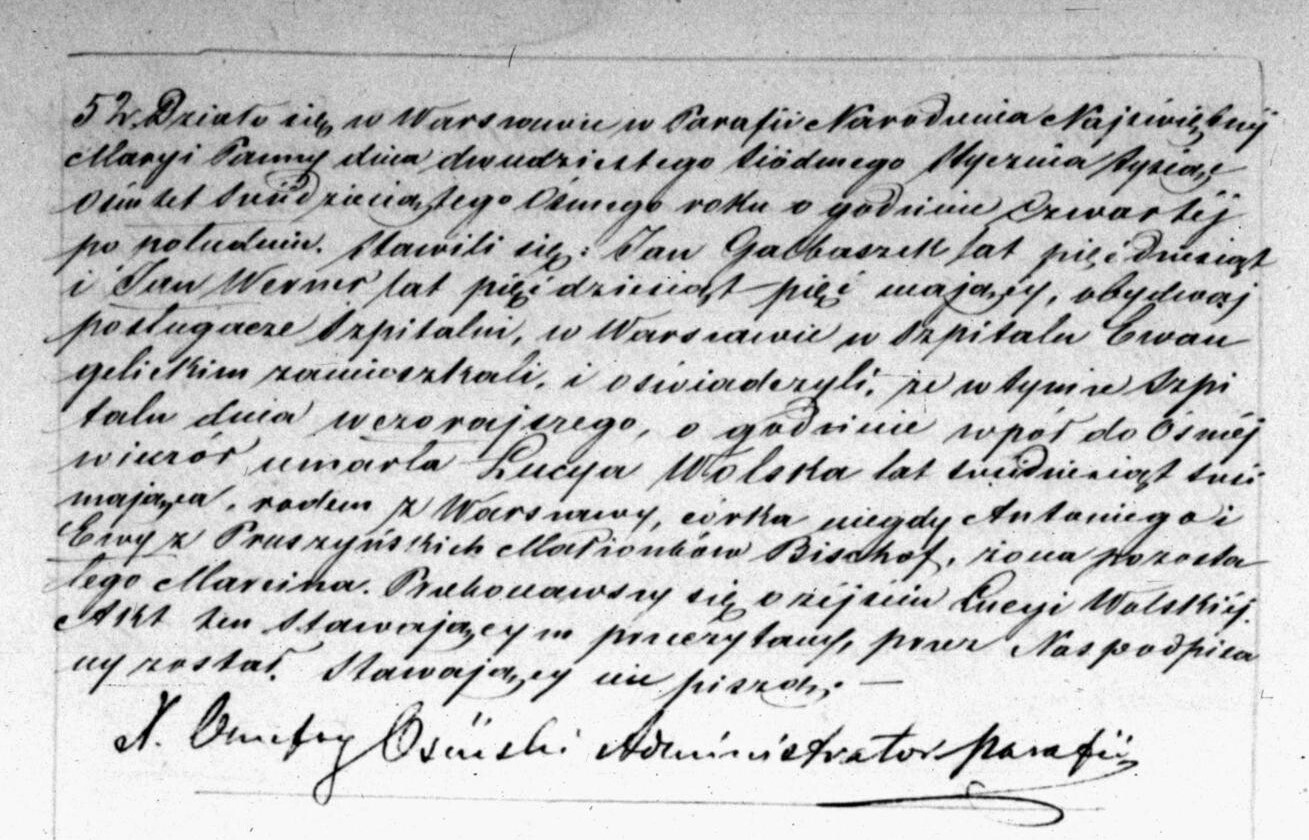 52. Działo się w Warszawie w Parafii Narodzenia Najświętszéj
Maryi Panny dnia dwudziestego siódmego Stycznia tysiąc
ośmset sześćdziesiątego Ósmego roku o godzinie czwartéj
po południu. Stawili się: Jan Garbaszek lat pięćdziesiąt
i Jan Werner lat pięćdziesiąt pięć mający, obydwaj
posługacze szpitalni, w Warszawie w szpitalu Ewan
gelickim zamieszkali, i oświadczyli, że w tymże Szpi
talu dnia wczorajszego, o godzinie wpół do Ósméj
wieczór umarła Lucya Wolska lat
mająca, rodem z Warszawy, córka niegdy Antoniego i
Ewy z Pruszyńskich Małżonków Bischof, żona pozosta
łego Marcina. Przekonawszy się o zejściu Lucyi Wolskiéj.
Akt ten Stawającym przeczytany, przez Nas podpisa
ny został. Stawający nie piszą. —
X. Onufry Osiński Administrator parafii